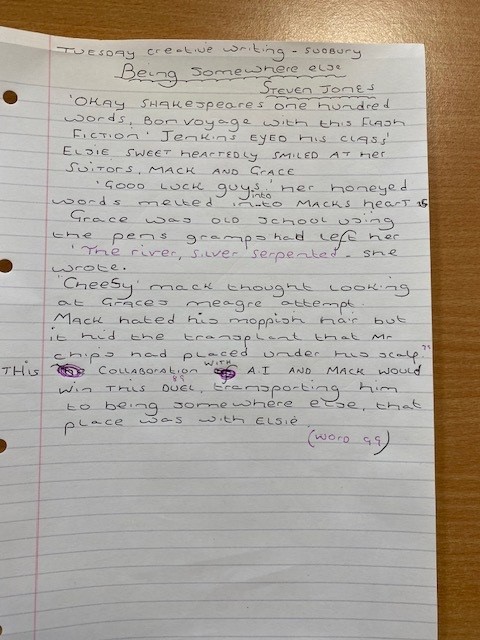 TUESDAY creative writing - SUDBURY
Being somewhere else
STEVEN JONES
'OKAY SHAKESPEARES one hundred
words, Bon voyage with this Flash
FICTION' Jenkins EYED his CLASS'
ELSIE SWEET heartedly smiled AT her
SUITORS, MACK AND GRACE
'GOOD LUCK guys.' her honeyed
into
words melted into MACKS heart 25
Grace was old school using
the pens gramps had left her
'The river, silver serpented - she
wrote.
'Cheesy' mack thought looking
at Graces meagre attempt.
Mack hated his moppish hair but
it hid the transplant that Mr
chips had placed under his scalp.
THIS COLLABORATION WITH A.I AND MACK WOULD
win THIS DUEL, transporting him
to being somewhere else, that
place was with ELSIE
(WORD 99)